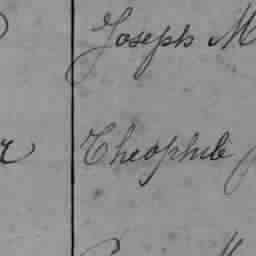 Joseph M
Theophile